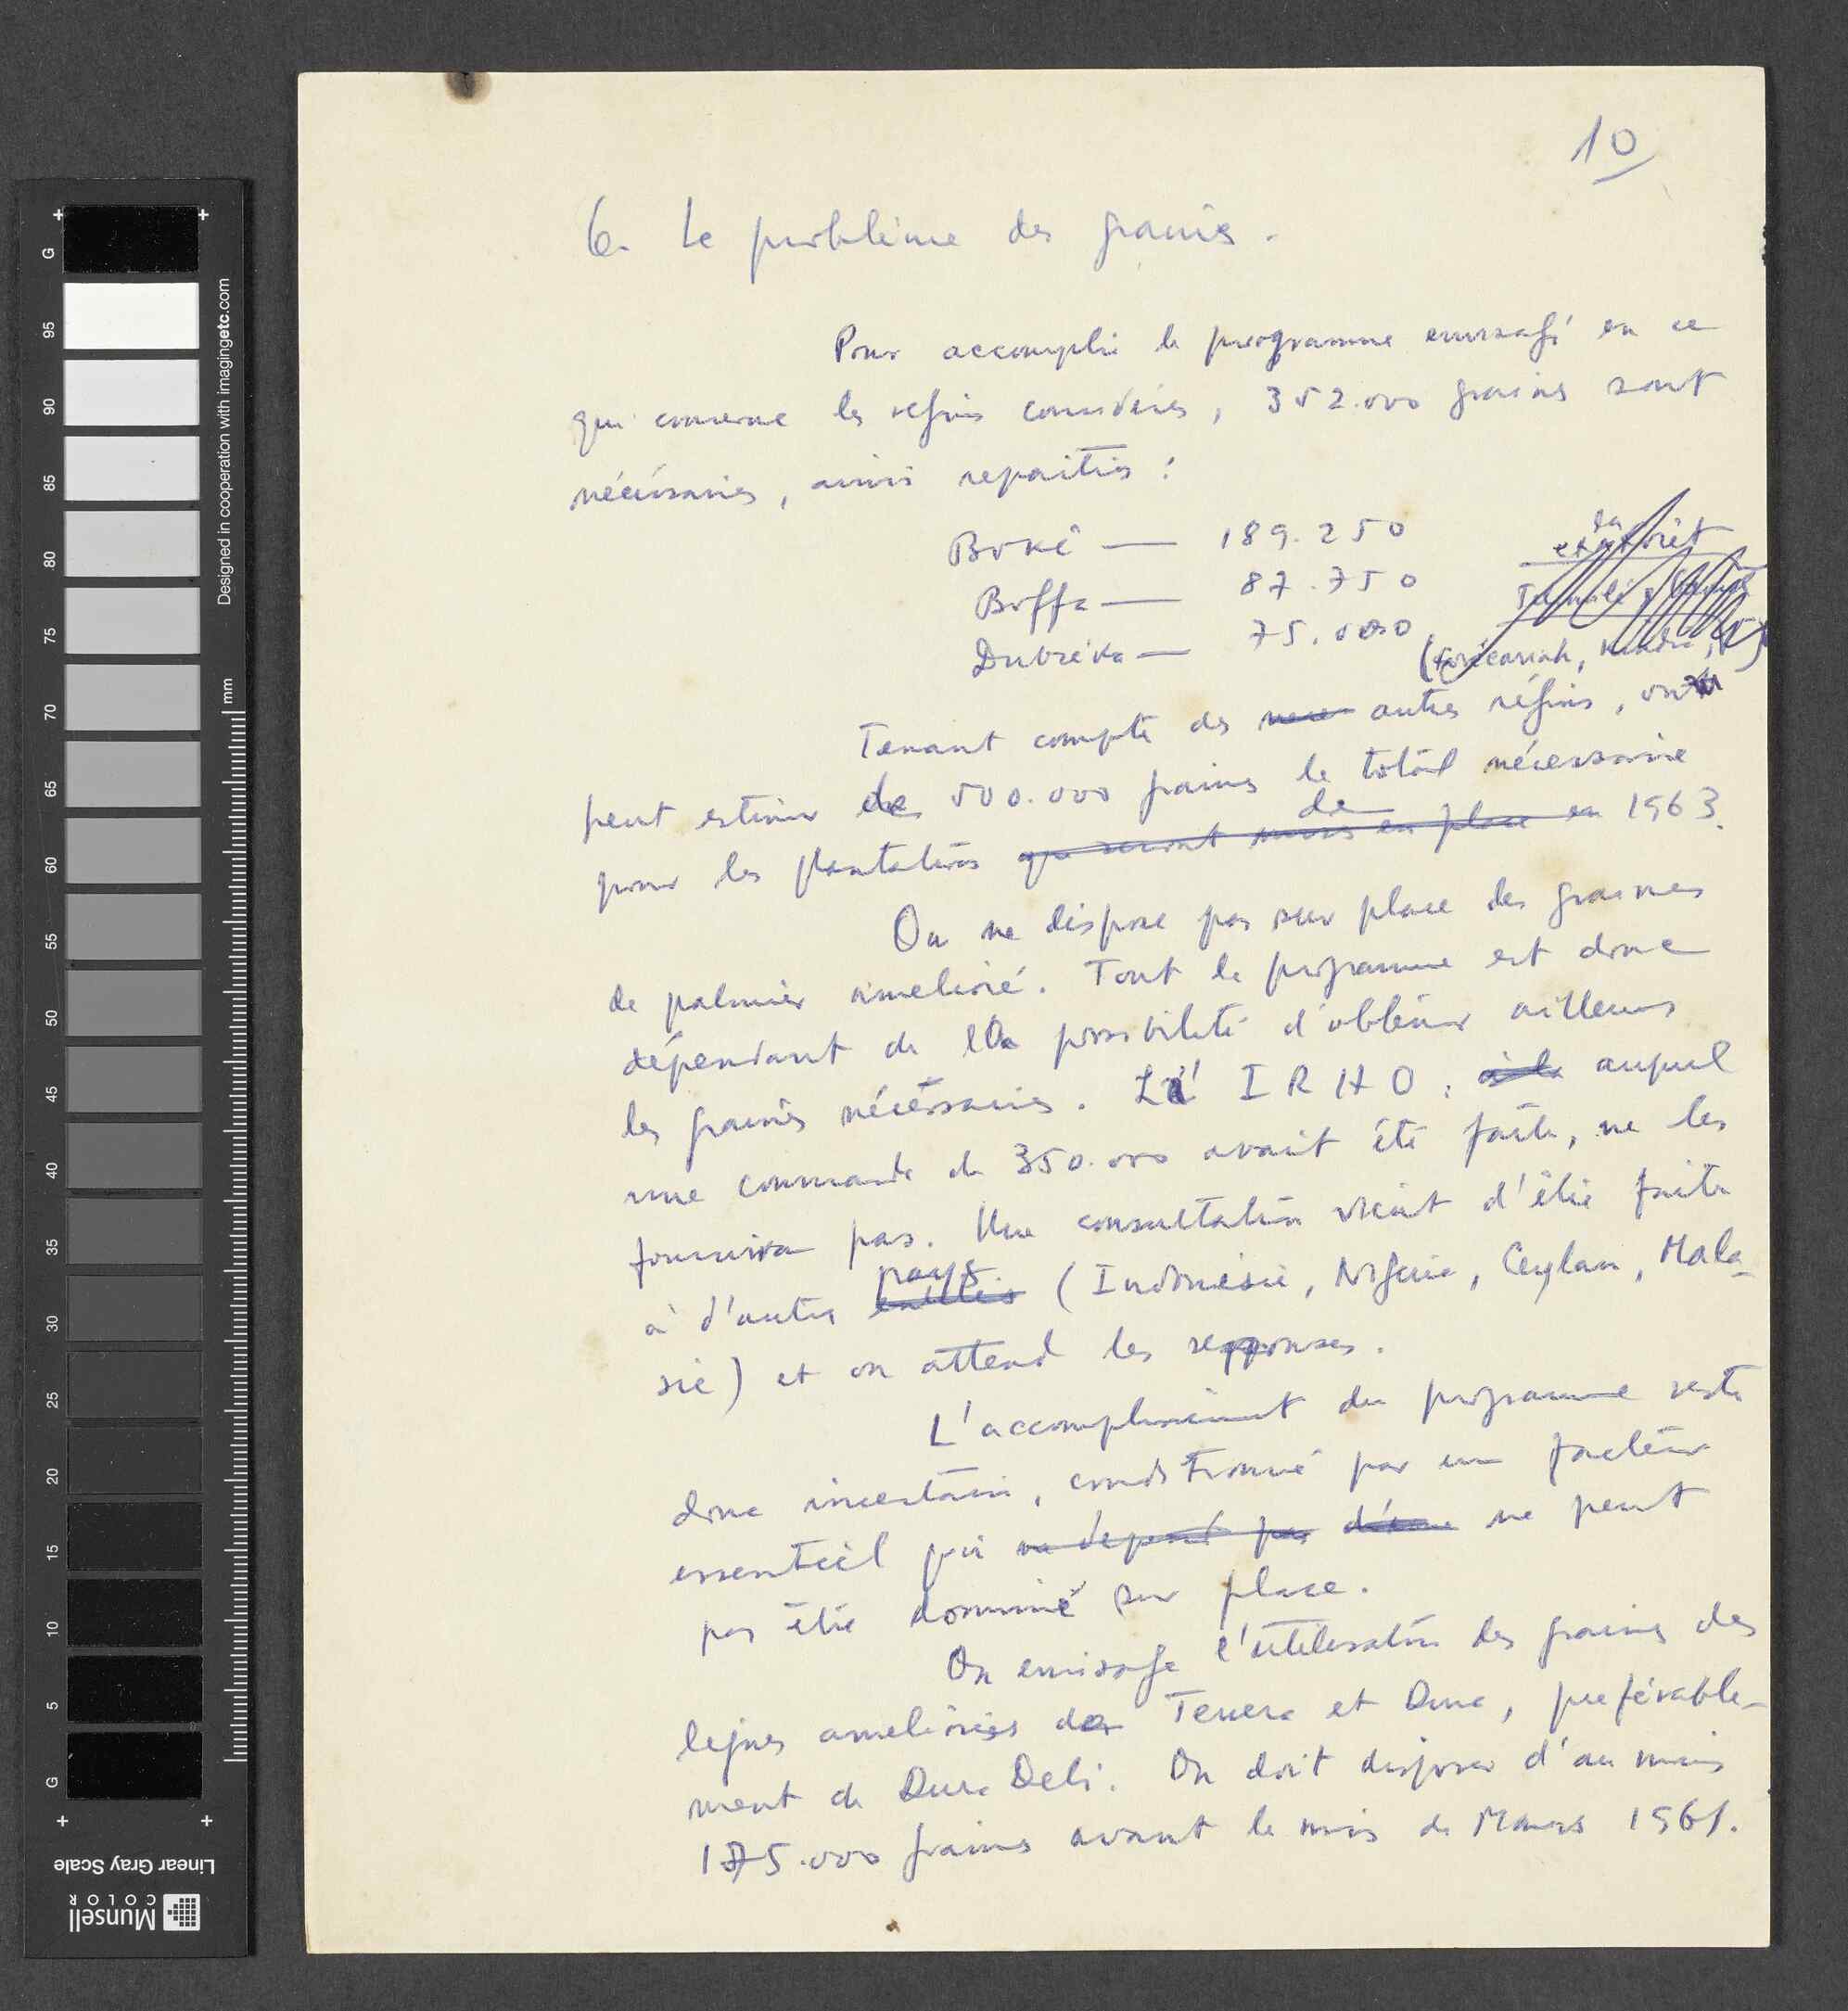 10
6. Le problème des graines.
Pour accomplir le programme envisagé en ce
qui concerne les régions considérées, 352.000 graines sont
nécéssaires, ainsi reparties :
Boké — 189.250
Boffa — 87.750
Dubréka — 75.000
(Forécariah, Kindia,
Tenant compte des autres régions, on
peut estimer de 500.000 graines le total nécessaire
de
pour les plantations que seront mises en place en 1963.
On ne dispose pas sur place des graines
de palmier amelioré. Tout le programme est donc
dépendant de la possibilité d'obtenir ailleurs
les graines nécéssaires. L' IRHO, auquel
une commande de 350.000 avait été faite, ne les
fournira pas. Une consultation vient d'être faite
pays
à d'autres (Indonésie, Nigeria, Ceylan, Mala-
sie) et on attend les reponses.
L'accomplissement du programme reste
donc incertain, conditionné par un facteur
essentiel qui ne dépend pas d'une ne peut
pas être dominé sur place.
On envisage l'utilisation des graines des
lignes ameliorées de Tenera et Dura, preférable-
ment de Dura Deli. On doit disposer d'au moins
175.000 graines avant le mois de Mars 1961.
Designed in cooperation with imagingetc.com
mm
G
95
90
85
80
75
70
65
60
55
50
45
40
35
30
25
20
15
10
5
G
Linear Gray Scale
Munsell
COLOR